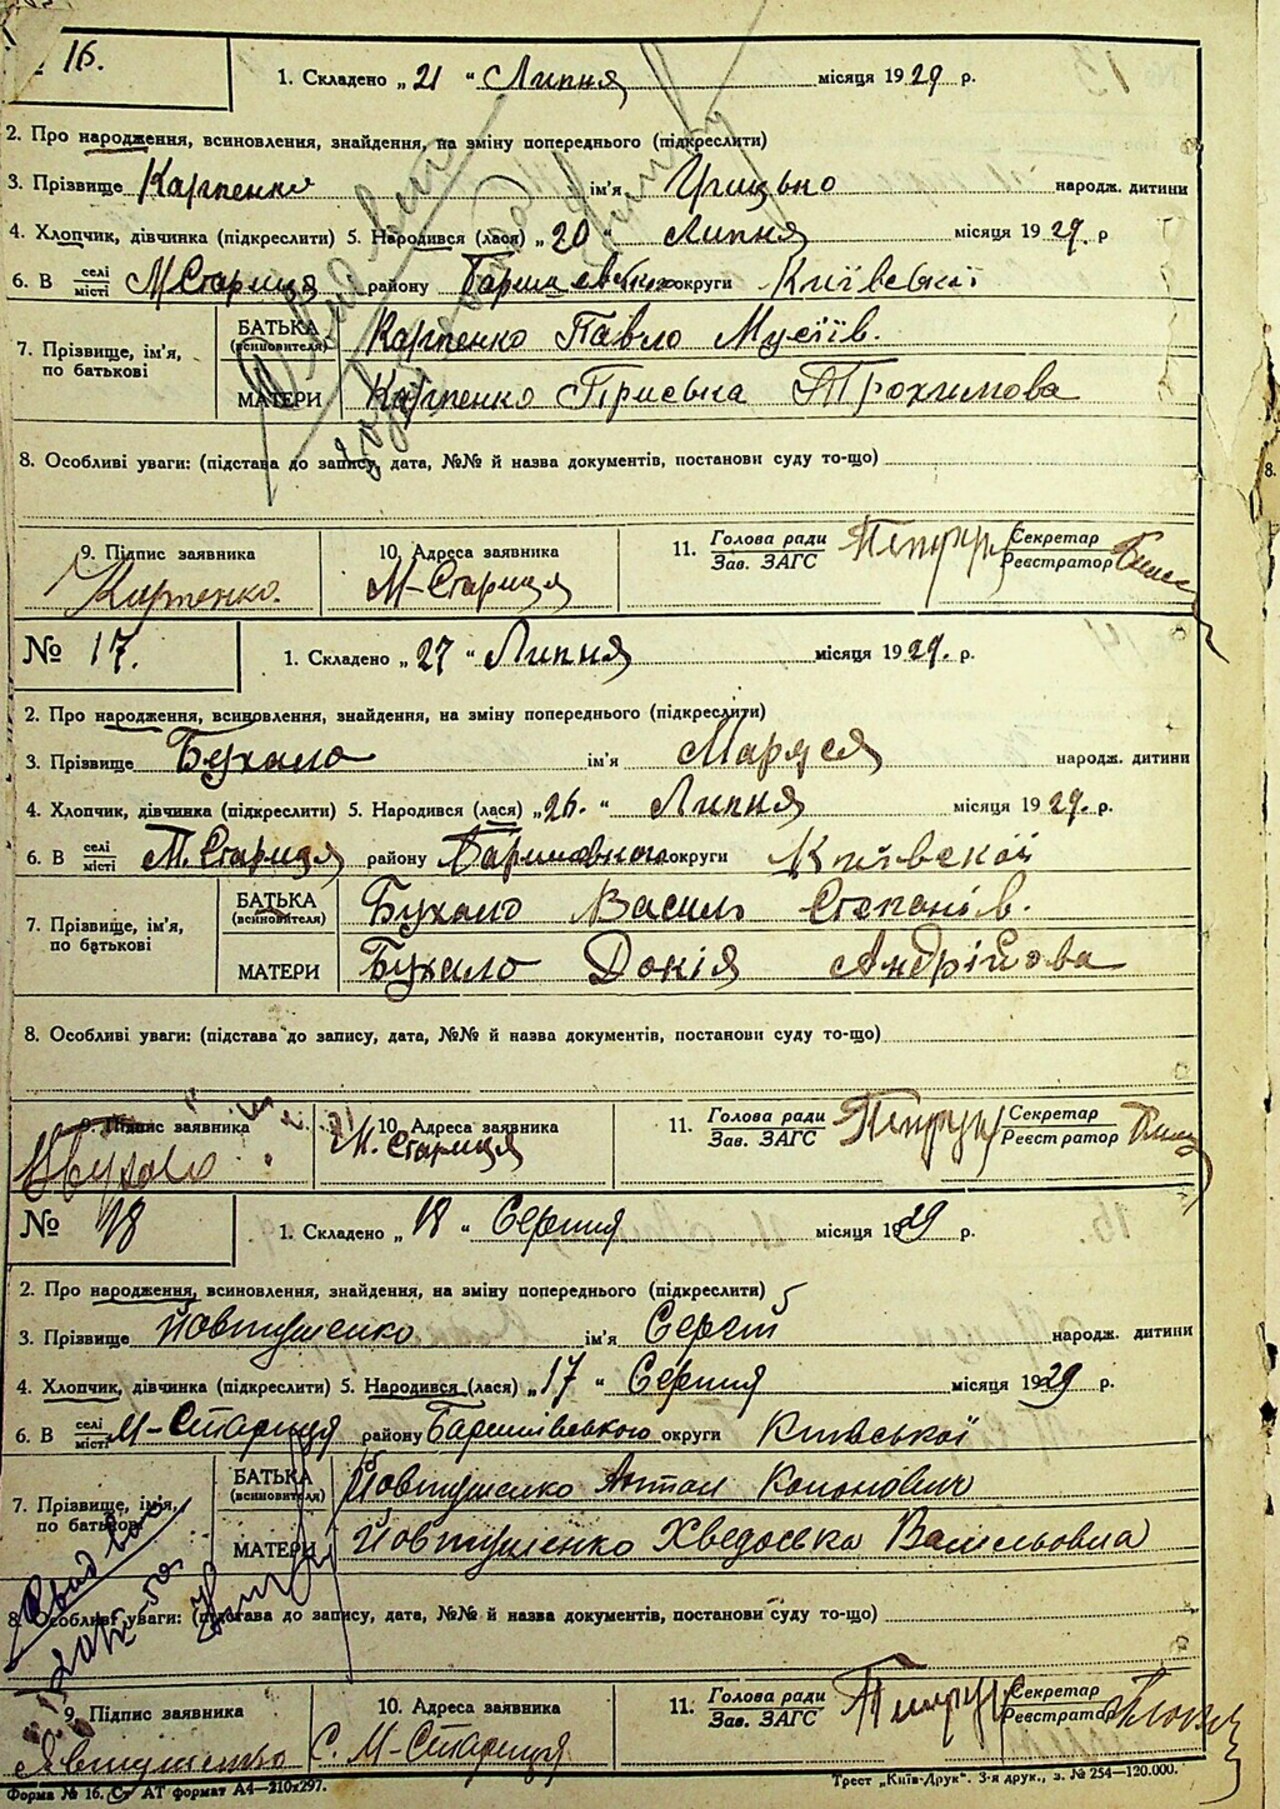 16.
1. Складено „ 21 “ Липня місяця 1929 р.
2. Про народження, всиновлення, знайдення, на зміну попереднього (підкреслити)
3. Прізвище Карпенко ім'я Грицько народж. дитини
4. Хлопчик, дівчинка (підкреслити) 5. Народився (лася) „ 20 “ Липня місяця 1929. р
6. В селі місті М Стариця району округи Київської
7. Прізвище, ім'я, по батькові
БАТЬКА (всиновителя) Карпенко Павло Мусіїв.
МАТЕРИ Карпенко Пріська Трохимова
8. Особливі уваги: (підстава до запису, дата, №№ й назва документів, постанови суду то-що)
9. Підпис заявника 10. Адреса заявника 11. Голова ради Зав. ЗАГС Секретар Реєстратор
Карпенко. М-Стариця
№ 17.
1. Складено „ 27 “ Липня місяця 1929. р.
2. Про народження, всиновлення, знайдення, на зміну попереднього (підкреслити)
3. Прізвище Бухало ім'я Маруся народж. дитини
4. Хлопчик, дівчинка (підкреслити) 5. Народився (лася) „26. “ Липня місяця 1929. р.
6. В селі місті М. Стариця району округи Київскої
7. Прізвище, ім'я, по батькові
БАТЬКА (всиновителя) Бухало Василь Степанів.
МАТЕРИ Бухало Докія Андрійова
8. Особливі уваги: (підстава до запису, дата, №№ й назва документів, постанови суду то-що)
9. Підпис заявника 10. Адреса заявника 11. Голова ради Зав. ЗАГС Секретар Реєстратор
М. Стариця
№ 18
1. Складено „ 18 “ Серпня місяця 1929 р.
2. Про народження, всиновлення, знайдення, на зміну попереднього (підкреслити)
3. Прізвище Йовтушенко ім'я Сергій народж. дитини
4. Хлопчик, дівчинка (підкреслити) 5. Народився (лася) „ 17 “ Серпня місяця 1929 р.
6. В селі місті М-Стариця району Баришівського округи Київської
7. Прізвище, ім'я, по батькові
БАТЬКА (всиновителя) Йовтушенко Антон Кононович
МАТЕРИ Йовтушенко Хведоська Васильовна
8. Особливі уваги: (підстава до запису, дата, №№ й назва документів, постанови суду то-що)
9. Підпис заявника 10. Адреса заявника 11. Голова ради Зав. ЗАГС Секретар Реєстратор
Явтушенко С. М-Стариця
Форма № 16. Ст АТ формат А4—210х297. Трест „Київ-Друк“. 3-я друк., з. № 254—120.000.
8.